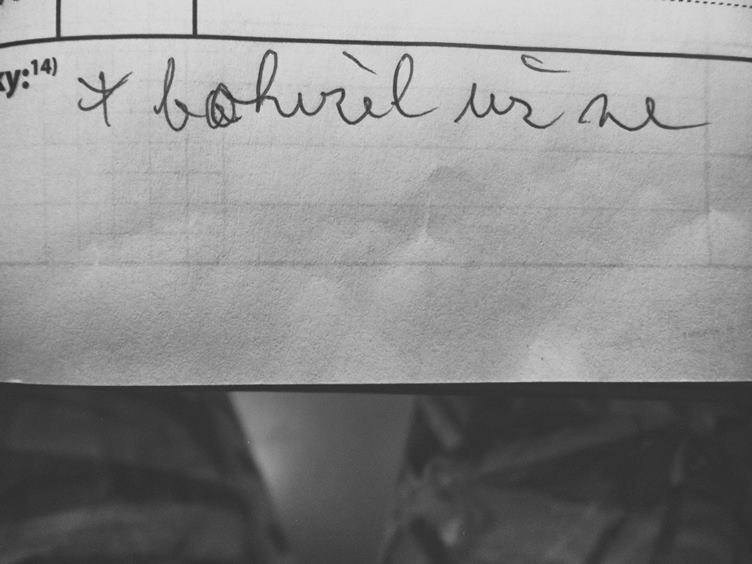 ky:14)
* bohužel už ne